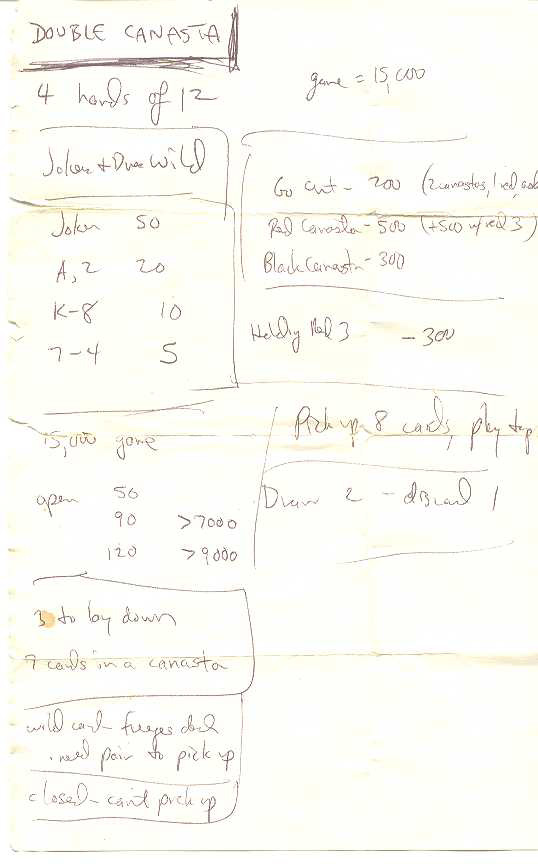 DOUBLE CANASTA
game = 15,000
4 hands of 12
Joker + Duce Wild
Joker 50
A, 2 20
K-8 10
7-4 5
Go out - 200 (2 canastas, 1 red,
Red Canasta - 500 (+500 w/red 3)
Black Canasta - 300
Holding Red 3 -300
15,000 game
open 50
90 >7000
120 >9000
Pick up 8 cards, play top
Draw 2 - discard 1
3 to lay down
7 cards in a canasta
wild card freezes deck
. need pair to pick up
closed - can't pick up